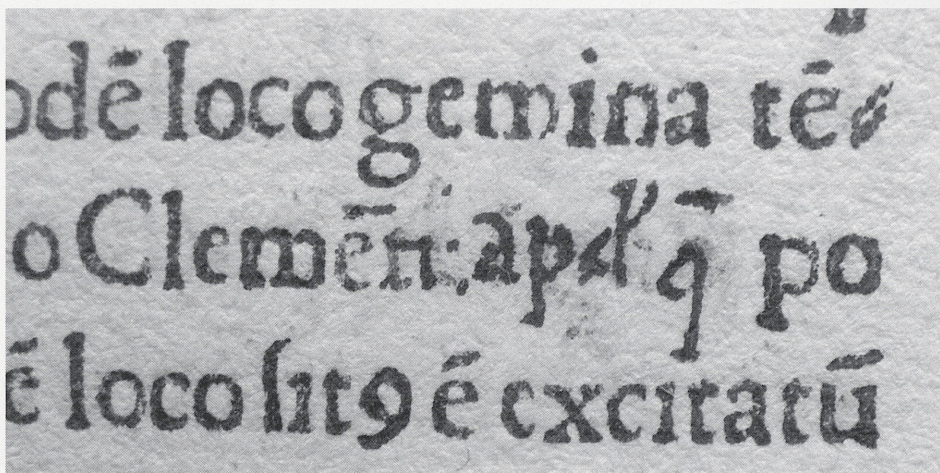 odē loco gemina tē⸗
o Clemēn: q̄ po
ē loco ſitꝰ ē excitatū